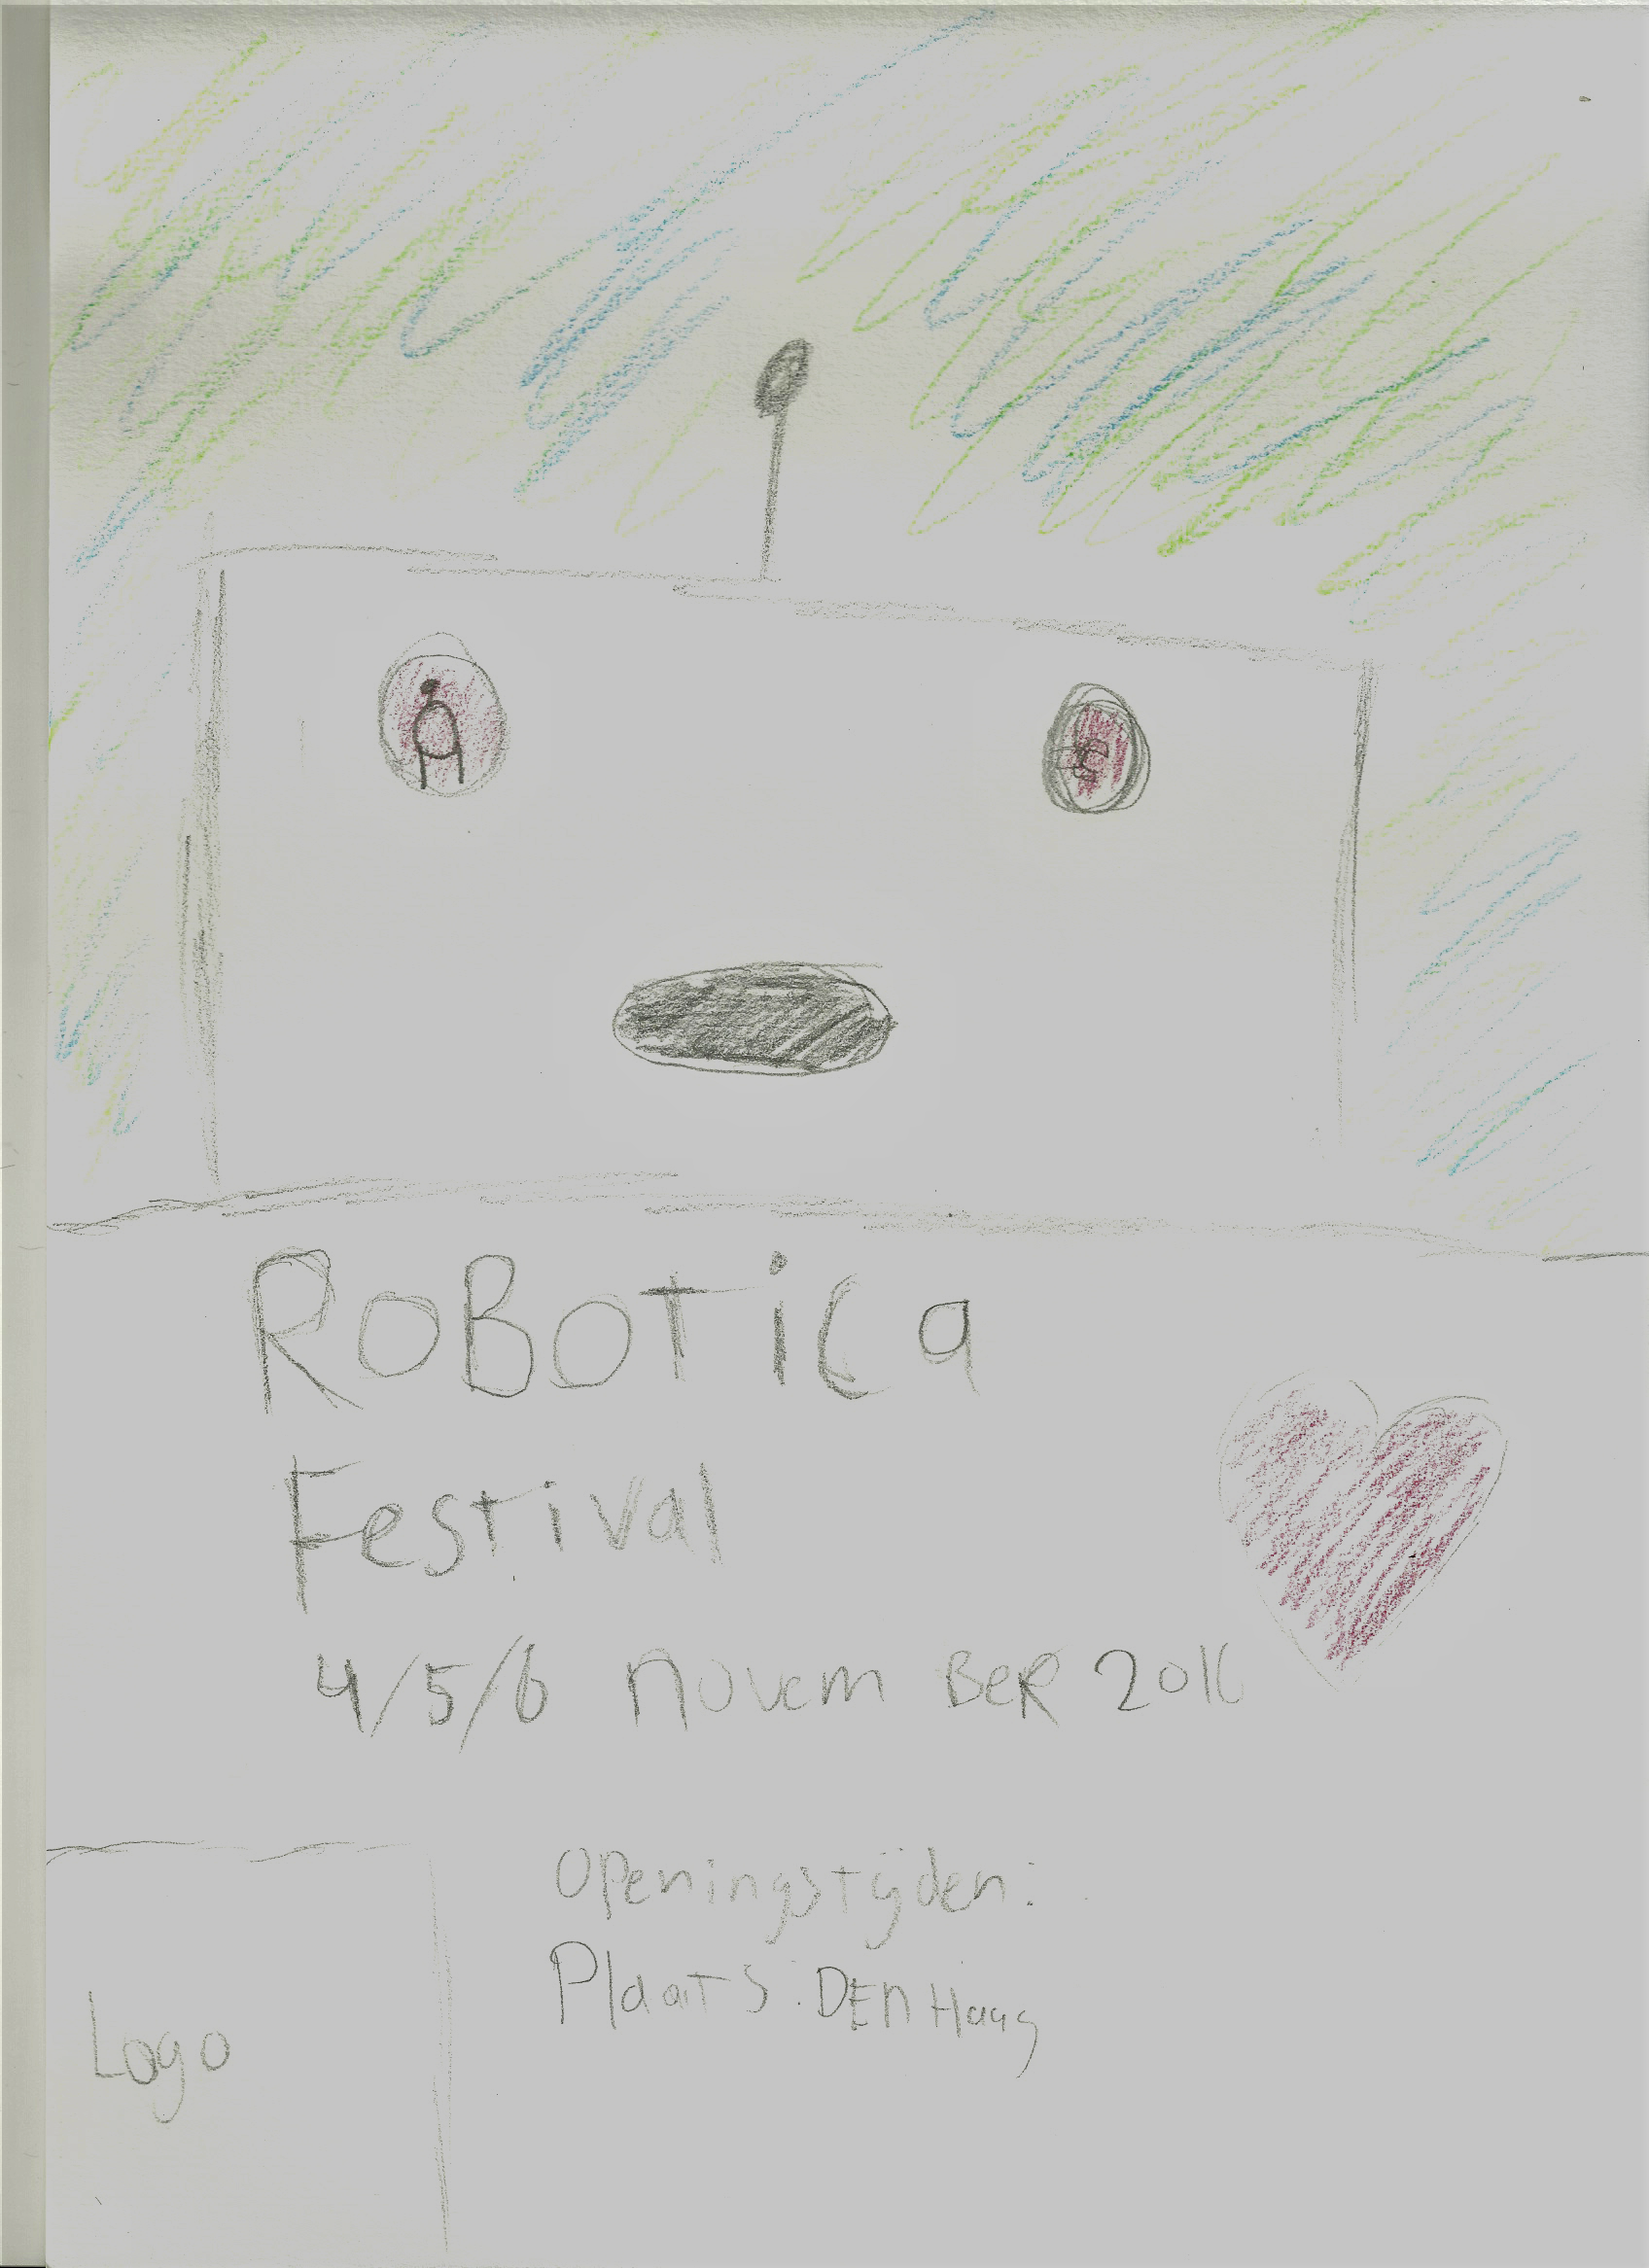 RoBoTica
Festival
4/5/6 november 2016
Openingstijden:
Plaats: DEN Haag
Logo